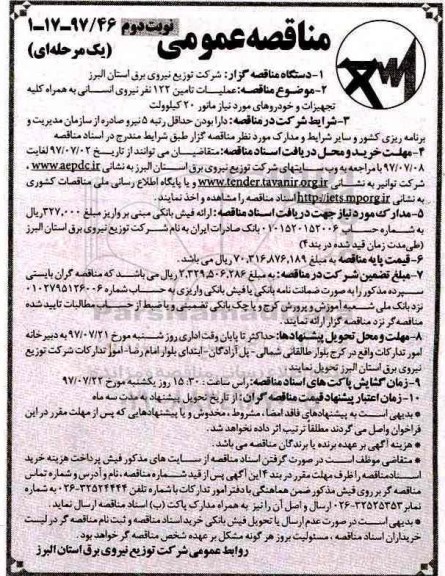 مناقصه عمومی
نوبت دوم ۹۷/۴۶-۱۷-۱
(یک مرحله‌ای)
۱-دستگاه مناقصه گزار: شرکت توزیع نیروی برق استان البرز
۲-موضوع مناقصه: عملیات تامین ۱۲۲ نفر نیروی انسانی به همراه کلیه
تجهیزات و خودروهای مورد نیاز مانور ۲۰ کیلوولت
۳-شرایط شرکت در مناقصه: دارا بودن حداقل رتبه ۵ نیرو صادره از سازمان مدیریت و
برنامه ریزی کشور و سایر شرایط و مدارک مورد نظر مناقصه گزار طبق شرایط مندرج در اسناد مناقصه
۴-مهلت خرید و محل دریافت اسناد مناقصه: متقاضیان می توانند از تاریخ ۹۷/۰۷/۰۲ لغایت
۹۷/۰۷/۰۸ با مراجعه به وب سایتهای شرکت توزیع نیروی برق استان البرز به نشانی www.aepdc.ir ،
شرکت توانیر به نشانی www.tender.tavanir.org.ir و یا پایگاه اطلاع رسانی ملی مناقصات کشوری
به نشانی http://iets.mporg.ir اسناد مناقصه را مشاهده و اخذ نمایند.
۵-مدارک مورد نیاز جهت دریافت اسناد مناقصه: ارائه فیش بانکی مبنی بر واریز مبلغ ۳۲۷,۰۰۰ ریال
به شماره حساب ۰۱۰۱۵۲۰۱۵۲۰۰۶ بانک صادرات ایران به نام شرکت توزیع نیروی برق استان البرز
(طی مدت زمان قید شده در بند۴)
۶-قیمت پایه مناقصه به مبلغ ۷۰,۳۱۶,۸۷۶,۱۸۹ ریال می باشد.
۷-مبلغ تضمین شرکت در مناقصه: به مبلغ ۲,۳۲۹,۵۰۶,۲۸۶ ریال می باشد که مناقصه گران بایستی
سپرده مذکور را به صورت ضمانت نامه بانکی یا فیش بانکی واریزی به حساب شماره ۰۱۰۲۷۹۵۱۲۶۰۰۶
نزد بانک ملی شعبه آموزش و پرورش کرج و یا چک بانکی تضمینی و یا ضبط از حساب مطالبات تایید شده
مناقصه گر نزد مناقصه گزار ارائه نمایند.
۸-مهلت و محل تحویل پیشنهادها: حداکثر تا پایان وقت اداری روز شنبه مورخ ۹۷/۰۷/۲۱ به دبیرخانه
امور تدارکات واقع در کرج بلوار طالقانی شمالی - پل آزادگان-ابتدای بلوار امام رضا- امور تدارکات شرکت توزیع
نیروی برق استان البرز تحویل نمایند.
۹-زمان گشایش پاکت های اسناد مناقصه: راس ساعت ۱۵:۳۰ روز یکشنبه مورخ ۹۷/۰۷/۲۲
۱۰-زمان اعتبار پیشنهاد قیمت مناقصه گران: از تاریخ تحویل پیشنهاد به مدت سه ماه
* بدیهی است به پیشنهادهای فاقد امضا، مشروط، مخدوش و یا پیشنهادهایی که پس از مهلت مقرر در این
فراخوان واصل می گردند مطلقا ترتیب اثر داده نخواهد شد.
* هزینه آگهی بر عهده برنده یا برندگان مناقصه می باشد.
* متقاضی موظف است در صورت گرفتن اسناد مناقصه از سایت های مذکور فیش پرداخت هزینه خرید
اسناد مناقصه را ظرف مهلت مقرر در بند ۴ این آگهی پس از قید شماره مناقصه، نام و آدرس و شماره تماس
مناقصه گر بر روی فیش مذکور ضمن هماهنگی با دفتر امور تدارکات با شماره تلفن ۳۲۵۲۴۴۴۴-۰۲۶ به شماره
نمابر ۳۲۵۲۵۳۵۳-۰۲۶ ارسال و اصل آن را نیز به همراه مدارک پاکت (ب) اسناد مناقصه ارسال نماید.
* بدیهی است در صورت عدم ارسال یا تحویل فیش بانکی خرید اسناد مناقصه و ثبت نام مناقصه گر در لیست
خریداران اسناد مناقصه ، مسئولیت بروز هر گونه مشکل بر عهده شخص مناقصه گر خواهد بود.
روابط عمومی شرکت توزیع نیروی برق استان البرز